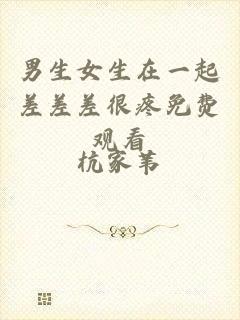 男生女生在一起
差差差很疼免费
观看
杭家苇